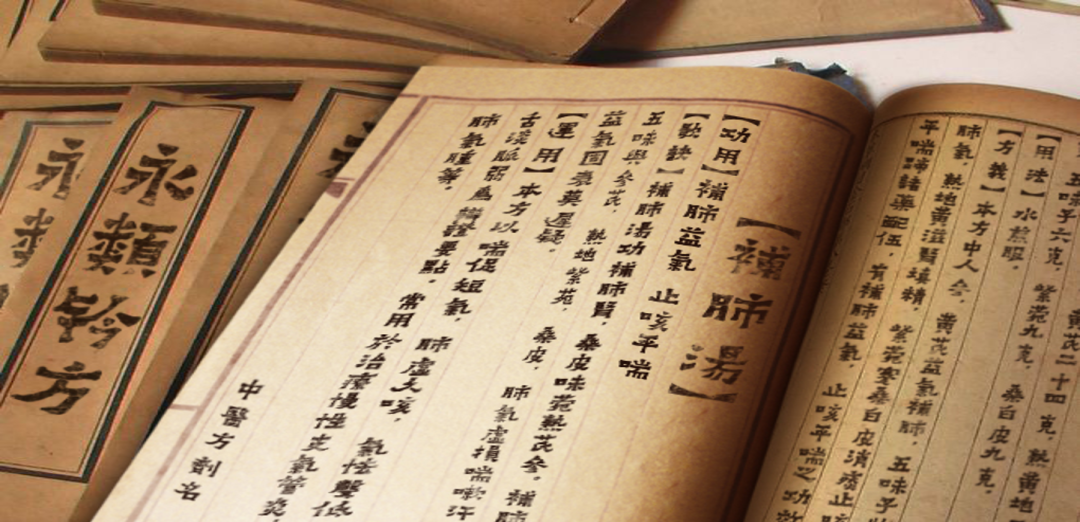 【補肺湯】
【功用】補肺益氣 止咳平喘
【歌訣】補肺湯功補肺腎，桑皮味菀熟芪參。補肺
五味與參芪，熟地紫菀，桑皮，肺氣虛損喘嗽汗
益氣固表莫遲疑。
【運用】本方以喘促短氣，肺虛久咳，氣怯聲低
脈弱為辨證要點。常用於治療慢性支氣管炎，
肺氣腫等。
中醫方劑名
黃芪二十四克，熟地
五味子六克，紫菀九克，桑白皮九克。
【用法】水煎服。
【方義】本方中人參，黃芪益氣補肺，五味子
肺氣，熟地黃滋腎填精，桑白皮消痰止咳
平喘諸藥配伍，有補肺益氣，止咳平喘之功效
永類鈐方
永類